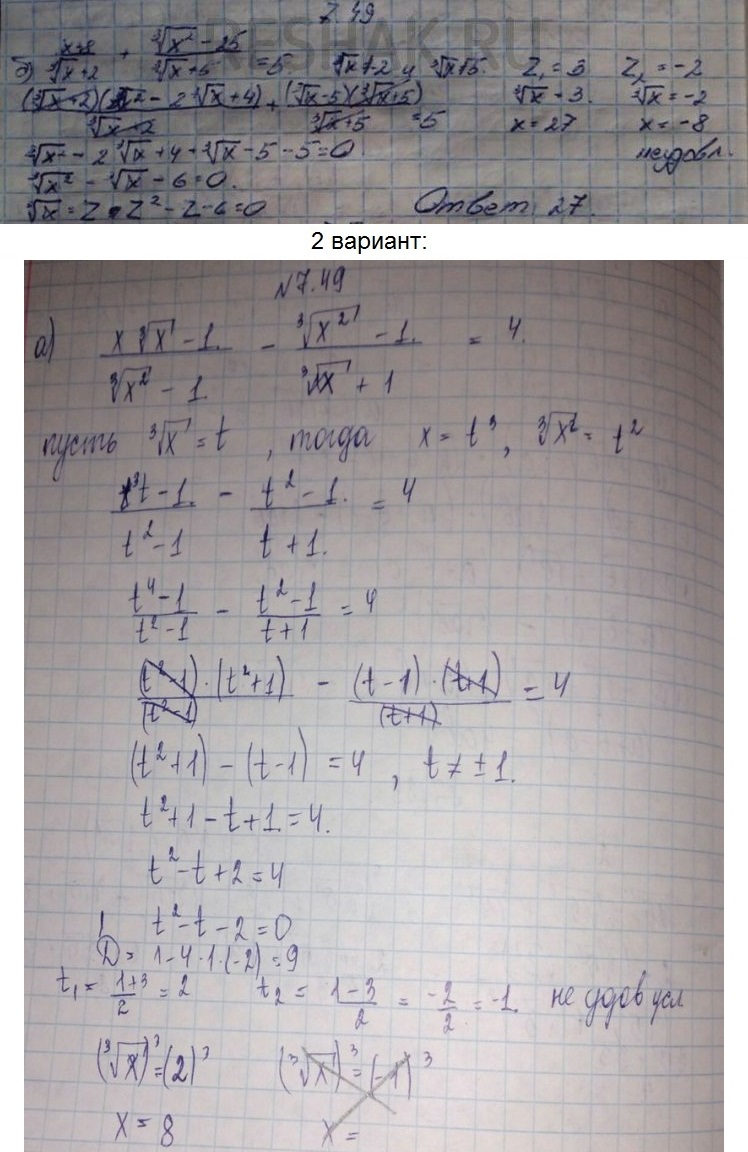 7.49
RESHAK.RU
б) x+8 / ∛x+2 + ∛x²-25 / ∛x+5 = 5. ∛x+2 и ∛x+5. Z₁=3 Z₂=-2
(∛x+2)(∛x²-2∛x+4) / ∛x+2 + (∛x-5)(∛x+5) / ∛x+5 = 5 ∛x=3. ∛x=-2
∛x²-2∛x+4+∛x-5-5=0 x=27 x=-8
∛x²-∛x-6=0. не удовл.
∛x=Z Z²-Z-6=0 Ответ: 27.
2 вариант:
№7.49
а) x∛x-1 / ∛x²-1 - ∛x²-1 / ∛x+1 = 4.
пусть ∛x=t, тогда x=t³, ∛x²=t²
t³t-1 / t²-1 - t²-1 / t+1 = 4
t⁴-1 / t²-1 - t²-1 / t+1 = 4
(t²-1)·(t²+1) / (t²-1) - (t-1)·(t+1) / (t+1) = 4
(t²+1)-(t-1)=4, t≠±1.
t²+1-t+1=4.
t²-t+2=4
t²-t-2=0
D=1-4·1·(-2)=9
t₁= 1+3 / 2 = 2 t₂= 1-3 / 2 = -2 / 2 = -1. не удов усл
(∛x)³=(2)³ (∛x)³=(-1)³
x=8 x=